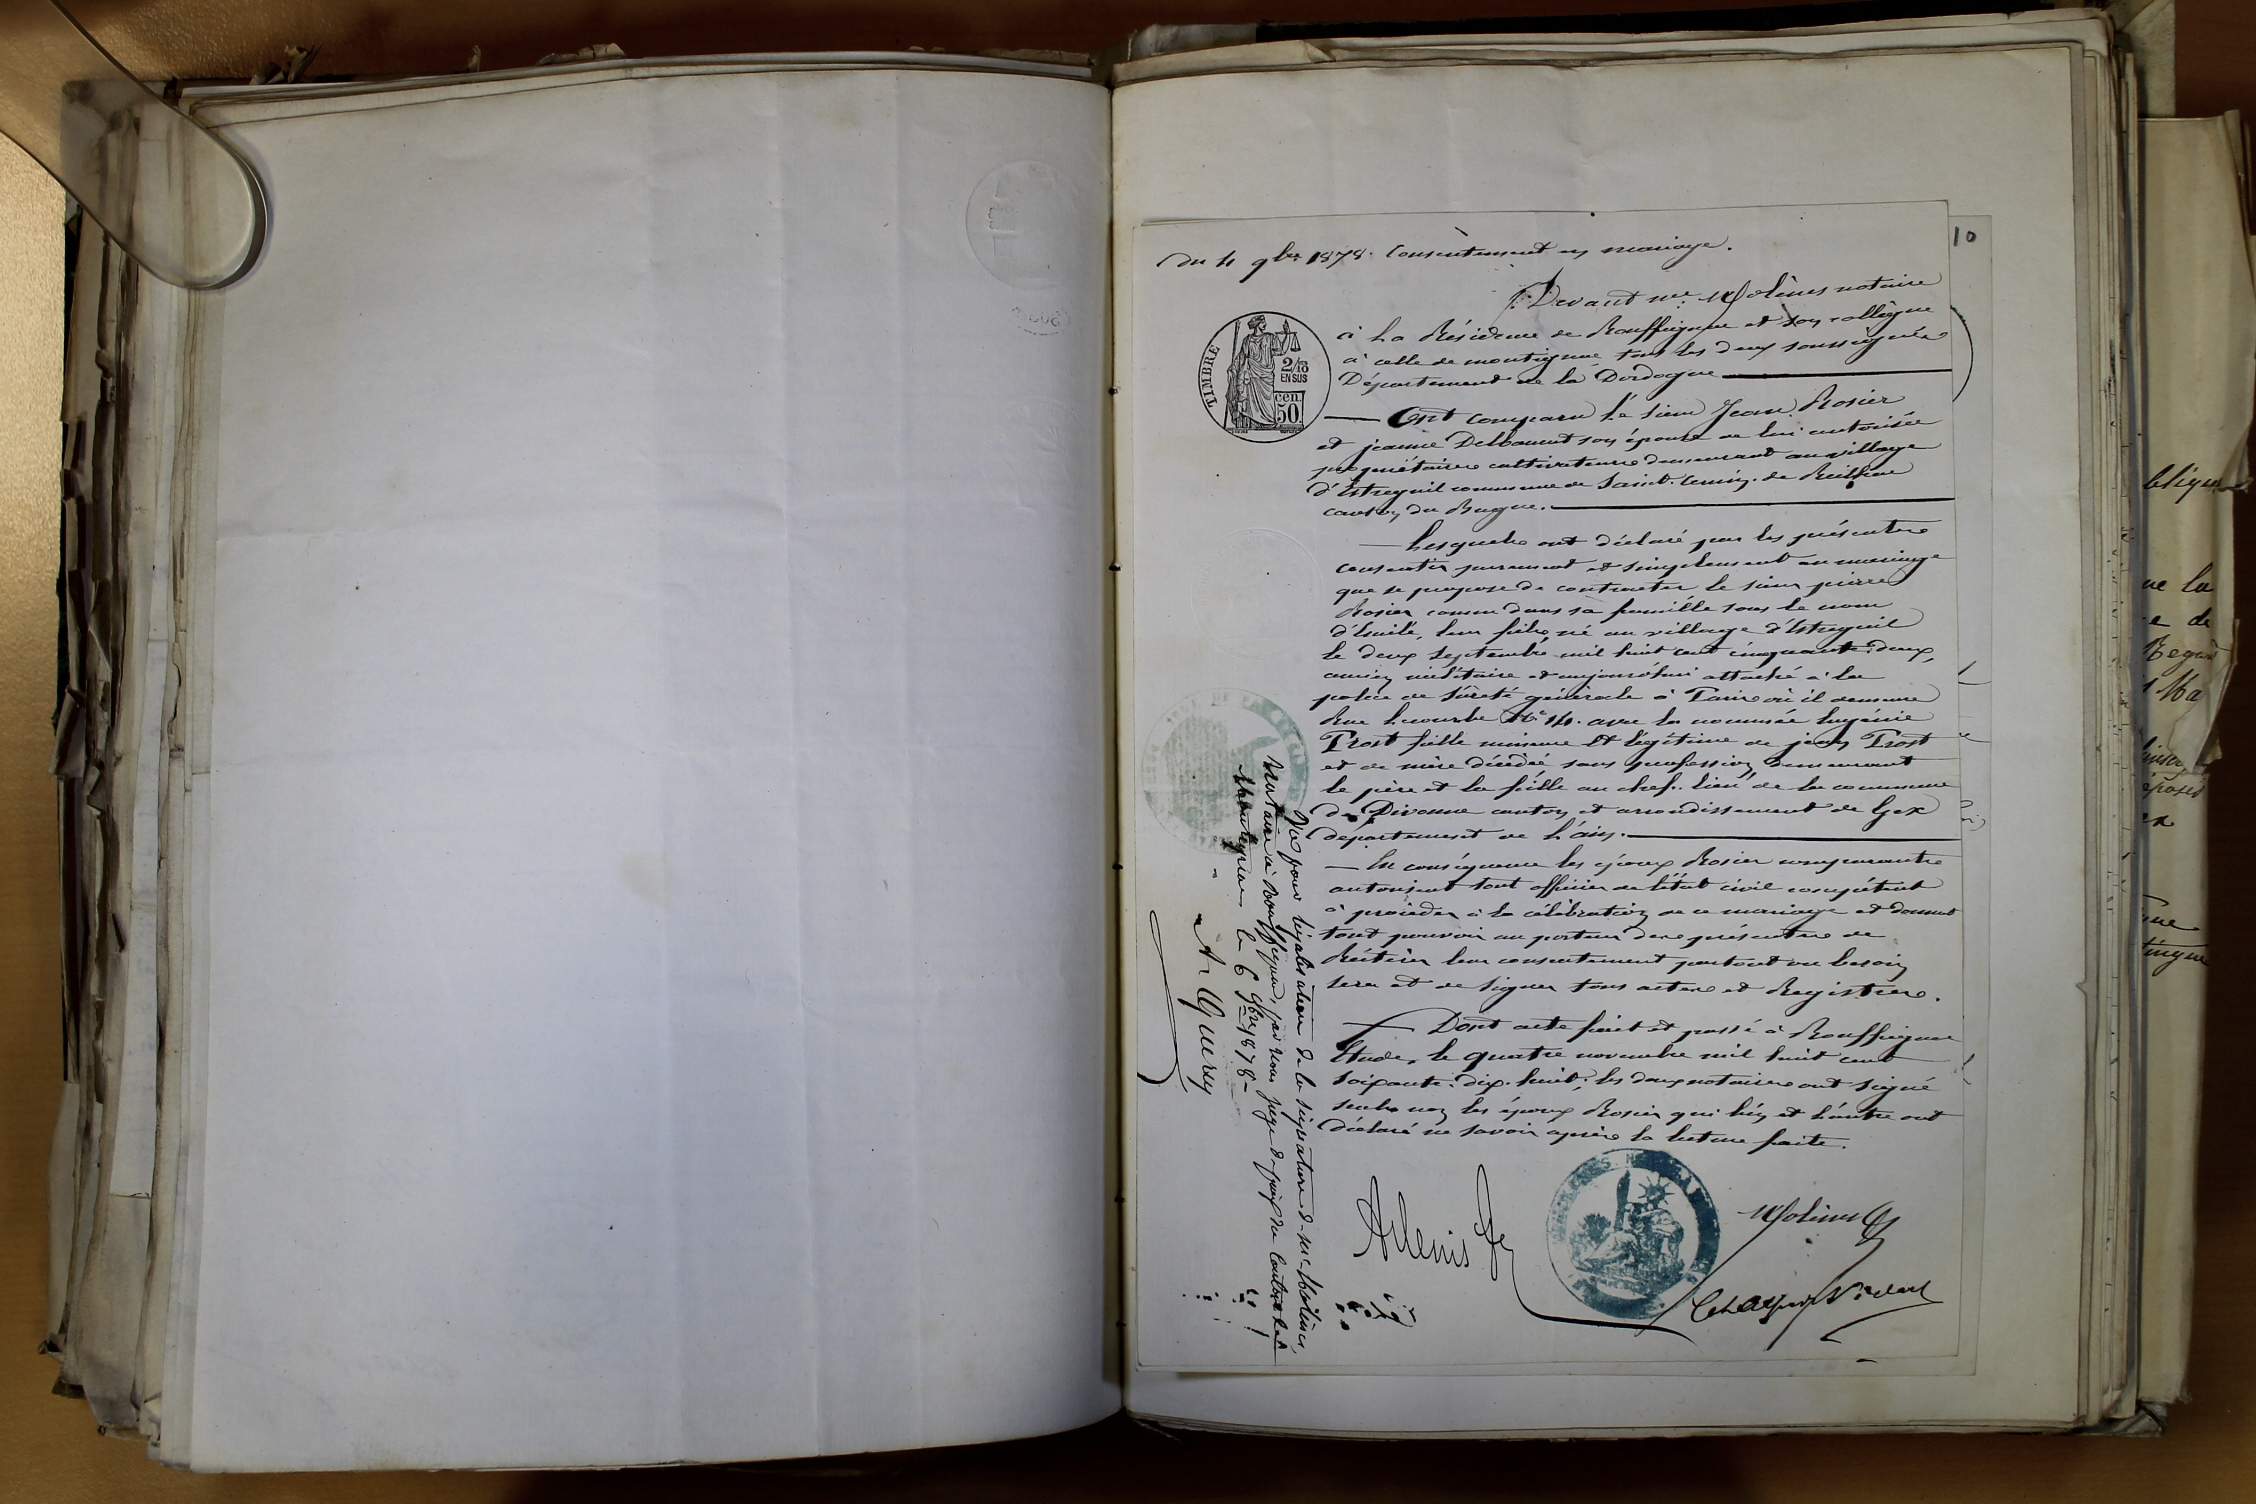 10
du 4 9bre 1878. Consentement en mariage.
Devant me. Molènes notaire
à la Résidence de Rouffignac et son collègue
à celle de montignac, tous les deux soussignés
Département de la Dordogne
TIMBRE
2/10
EN SUS
cen.
50.
Ont comparu le sieur Jean Rosier
et jeanne Delbancut son épouse de lui autorisée
propriétaires cultivateurs demeurant au village
d'Estreguil commune de Saint-Cernin-de Reillac
canton du Bugue.
Lesquels ont déclaré par les présentes
consentir purement et simplement au mariage
que se propose de contracter le sieur pierre
Rosier connu dans sa famille sous le nom
d'Emile, leur fils, né au village d'Estreguil
le deux Septembre mil huit cent cinquante-deux,
ancien militaire et aujourd'hui attaché à la
police de sûreté générale à Paris où il demeure
Rue Lecourbe No 14. avec la nommée Eugénie
Prost fille mineure et légitime de jean Prost
et de mère décédée sans profession, demeurant
le père et la fille au chef-lieu de la commune
de Divonne canton et arrondissement de Gex
département de l'ain.
En conséquence les époux Rosier comparants
autorisent tout officier de l'état civil compétent
à procéder à la célébration de ce mariage et donnent
tout pouvoir au porteur des présentes de
Réitérer leur consentement partout où besoin
sera et de signer tous actes et Registres.
Dont acte fait et passé à Rouffignac
Etude, le quatre novembre mil huit cent
soixante-dix-huit; les deux notaires ont signé
seuls non les époux Rosier qui l'un et l'autre ont
déclaré ne savoir après la lecture faite.
Molènes
Vu pour légalisation de la signature de Me Molènes,
Notaire à Rouffignac, par nous juge de paix du Canton de
Montignac le 6 9bre 1878-